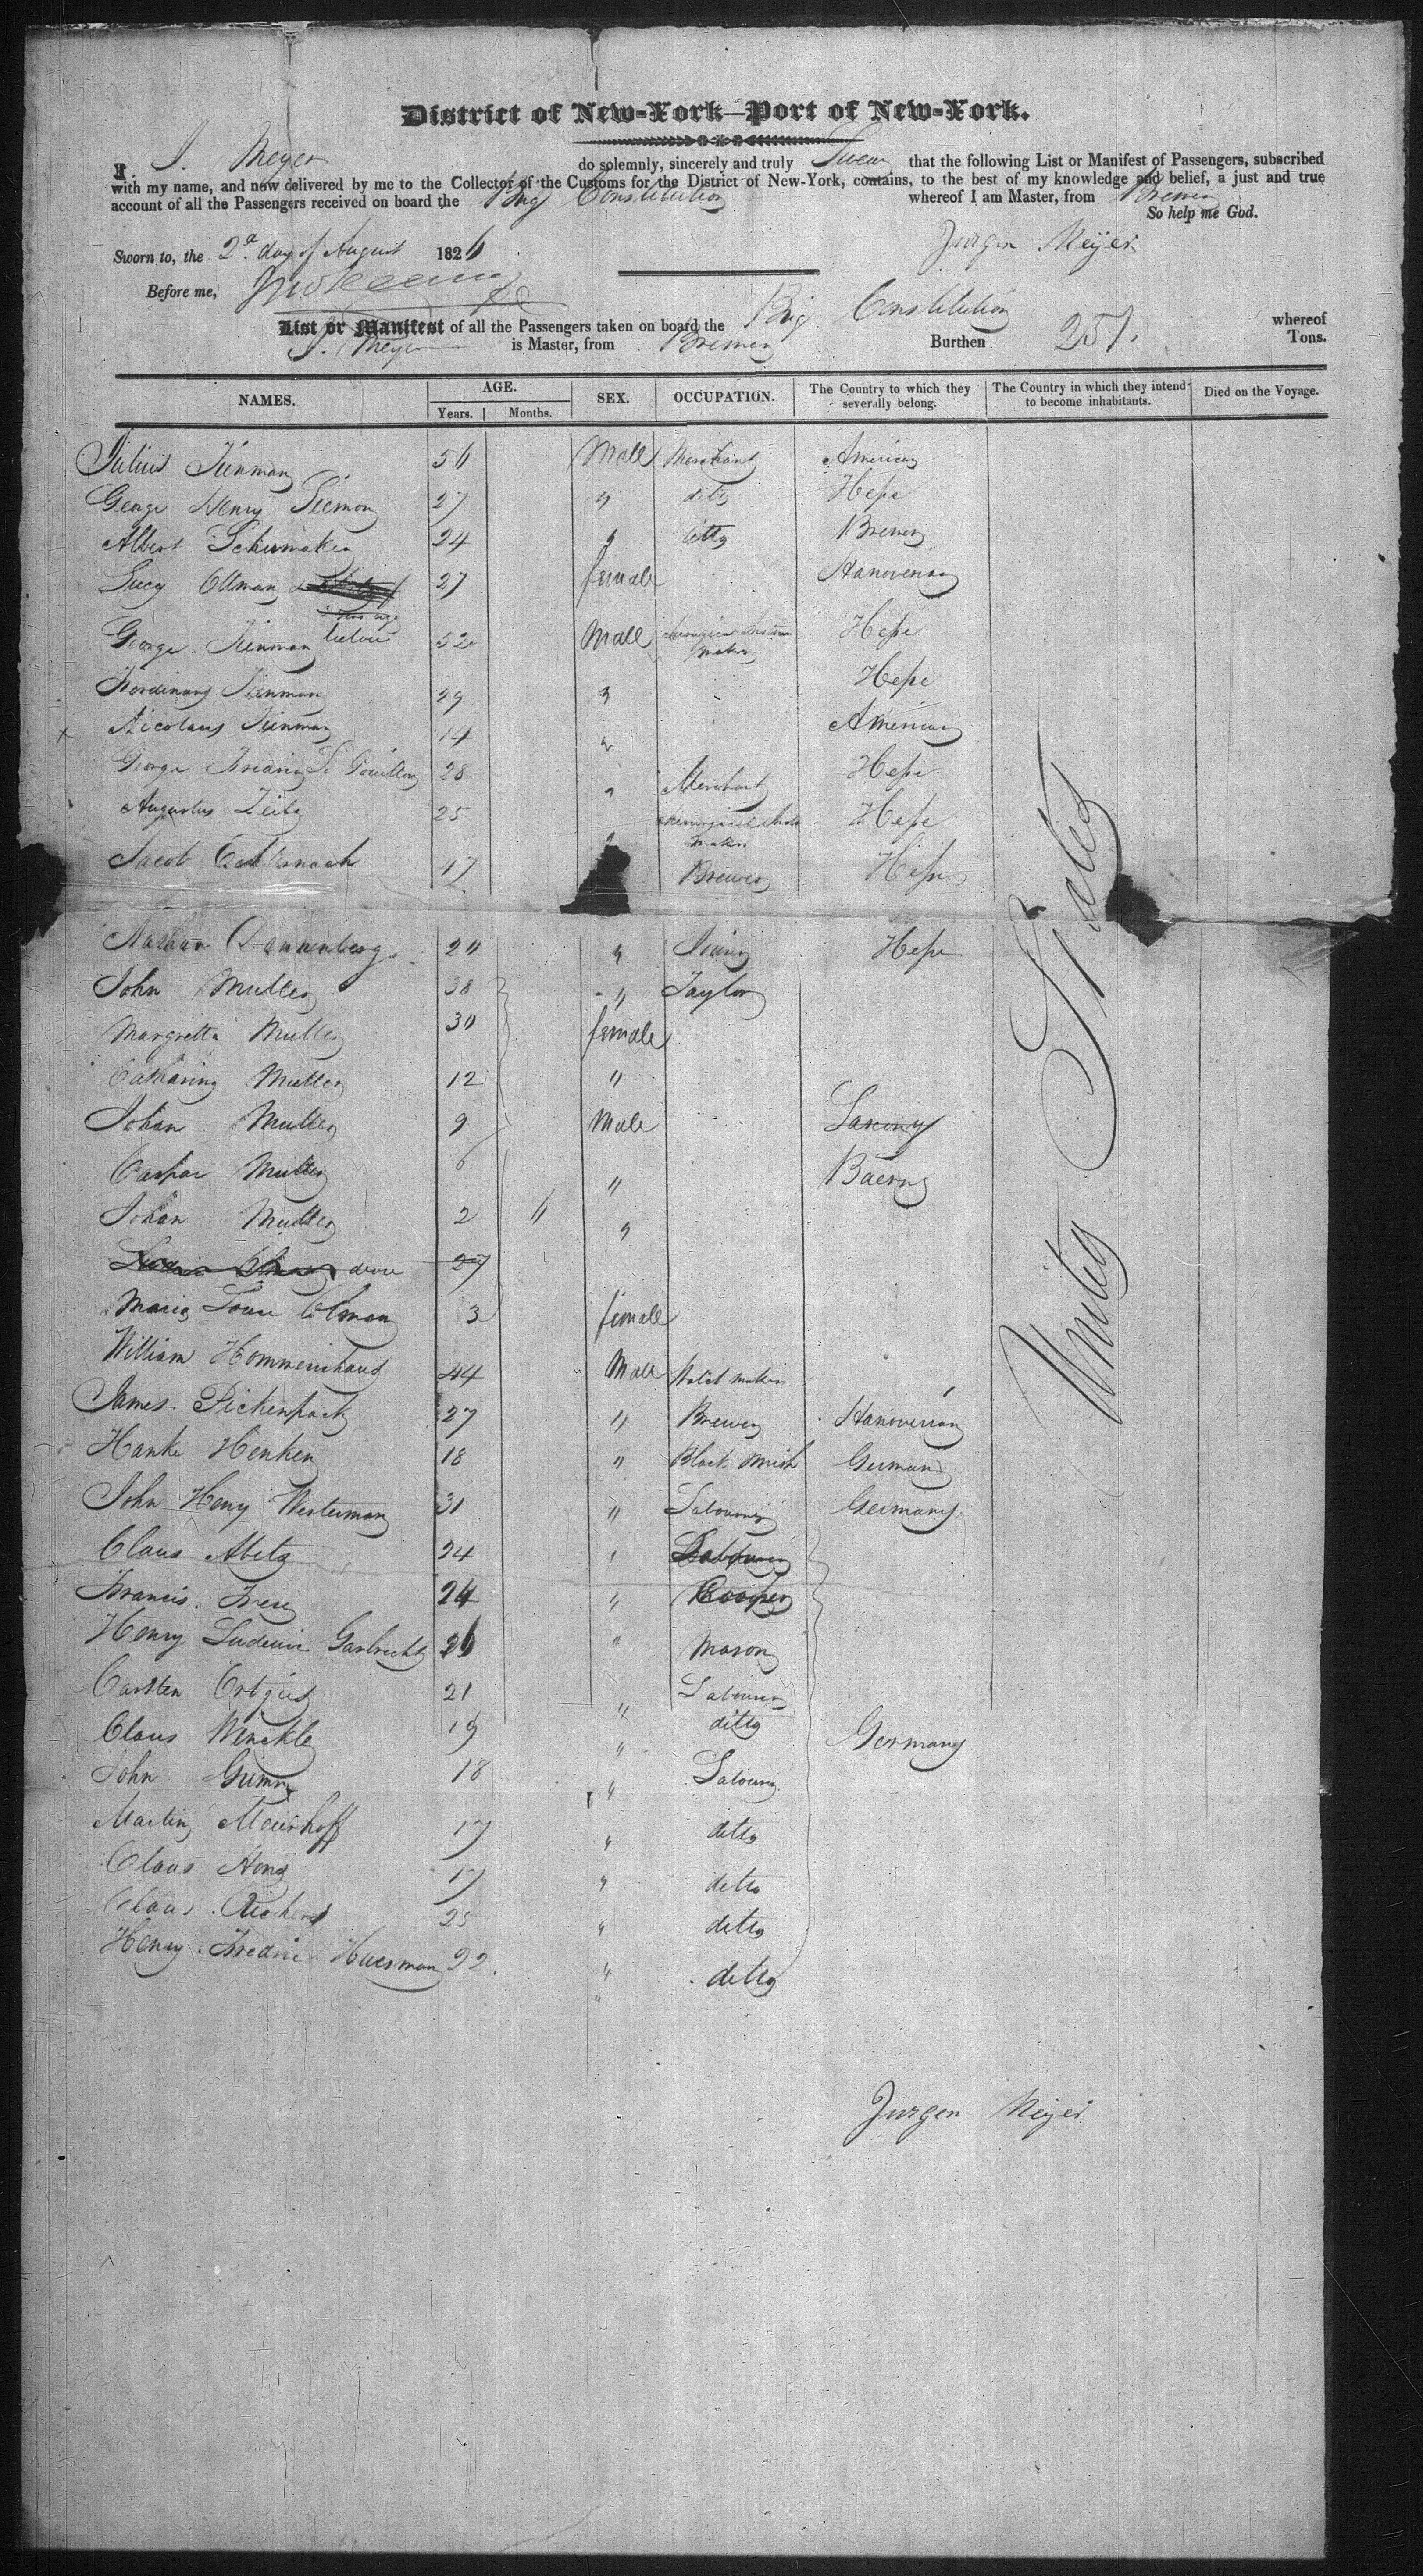 District of New-York—Port of New-York.
I, J. Meyer do solemnly, sincerely and truly Swear that the following List or Manifest of Passengers, subscribed
with my name, and now delivered by me to the Collector of the Customs for the District of New-York, contains, to the best of my knowledge and belief, a just and true
account of all the Passengers received on board the Brig Constitution whereof I am Master, from Bremen
So help me God.
Sworn to, the 2d. day of August 1826 Jurgen Meyer
Before me,
List or Manifest of all the Passengers taken on board the Brig Constitution whereof
J. Meyer is Master, from Bremen Burthen 251. Tons.
NAMES. AGE. SEX. OCCUPATION. The Country to which they severally belong. The Country in which they intend to become inhabitants. Died on the Voyage.
Years. Months.
Julius Male Merchant American
George Henry 27 " ditto Hesse
Albert Schumaker 24 " ditto Bremen
Lucy Olman 27 female Hanoverian
below
George 52 Male maker Hesse
Ferdinand 29 " Hesse
Nicolaus 14 " American
George 28 " Merchant Hesse
Augustus Zeitz 25 maker Hesse
Jacob 17 Brewer Hesse
Nathan Dannenberg 20 " Hesse
John Muller 38 " Taylor
Margretta Muller 30 female
Catharina Muller 12 "
Johan Muller 9 Male Saxony
Caspar Muller 6 " Baern
Johan Muller 2 " "
27
Maria Louise Olman 3 female
William 44 Male maker
James Pickenpack 27 " Brewer Hanoverian
Hanke Henken 18 " Black Smith German
John Henry Westerman 31 " Labourer Germany
Claus 24 " Labourer
Francis Frese 24 " Cooper
Henry Ludewic Garbrecht 26 " Mason
Carsten 21 " Labourer
Claus Winckle 19 " ditto Germany
John Grimm 18 " Labourer
Martin Meierhoff 17 " ditto
Claus 17 " ditto
Claus Richers 25 " ditto
Henry Fredric Huesman 22. " ditto
"
United States
Jurgen Meyer